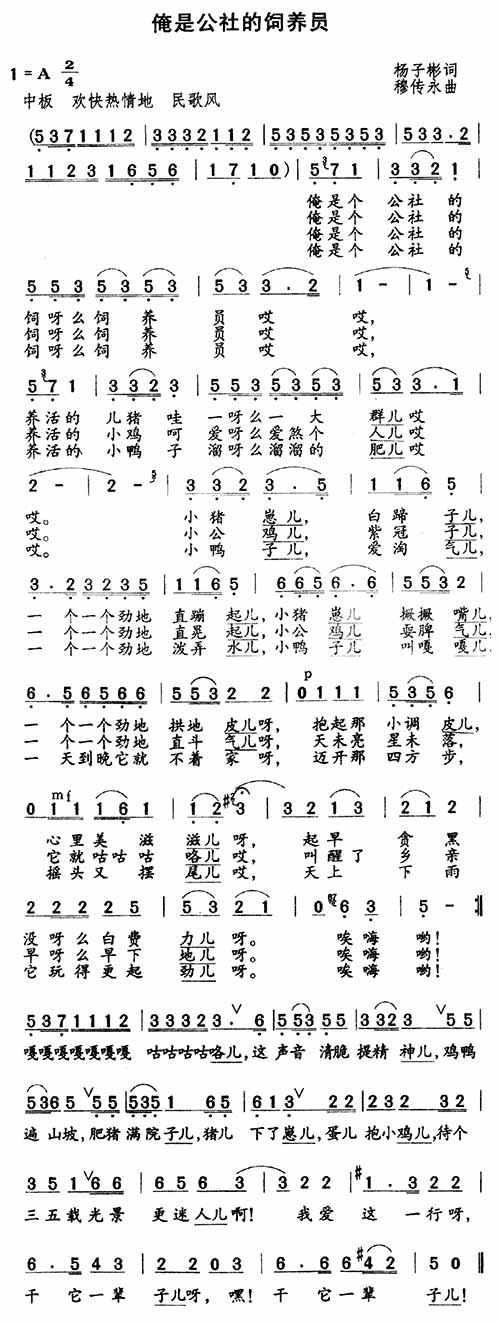 俺是公社的饲养员
1=A 2/4
杨子彬词
中板 欢快热情地 民歌风
穆传永曲
(5371112 | 3332112 | 535353535 | 533.2 |
1123 31656 | 1710) | 571 | 3321 |
俺是个 公社的
俺是个 公社的
俺是个 公社的
俺是个 公社的
553 5353 | 533.2 | 1 - | 1 - |
饲呀么饲 养 员 哎 哎,
饲呀么饲 养 员 哎 哎,
饲呀么饲 养 员 哎 哎,
571 | 3323 | 553 5353 | 533.1 |
养活的 儿猪哇 一呀么一 大 群儿哎
养活的 小鸡呵 爱呀么爱煞个 人儿哎
养活的 小鸭子 溜呀么溜溜的 肥儿哎
2 - | 2 - | 332 | 3.5 | 1165 |
哎。 小猪 崽儿, 白蹄 子儿,
哎。 小公 鸡儿, 紫冠 子儿,
哎。 小鸭 子儿, 爱淘 气儿,
3.23235 | 1165 | 6656.6 | 5532 |
一 个一个劲地 直蹦 起儿,小猪 崽儿 撅撅 嘴儿,
一 个一个劲地 直晃 起儿,小公 鸡儿 耍脾 气儿,
一 个一个劲地 泼弄 水儿,小鸭 子儿 叫嘎 嘎儿,
6.56566 | 55322 | 0111 | 5356 |
p
一 个一个劲地 拱地 皮儿呀, 抱起那 小调 皮儿,
一 个一个劲地 直斗 气儿呀, 天未亮 星未 落,
一 天到晚它就 不着 家 呀, 迈开那 四方 步,
mf
011 161 | 123 | 3213 | 212 |
心里美 滋 滋儿呀, 起早 贪黑
它就咕咕 咕 咯儿哎, 叫醒了 乡亲
摇头又 摆 尾儿哎, 天上 下雨
22225 | 5321 | 063 | 5 - :‖
没呀么白费 力儿 呀。 唉嗨 哟!
早呀么早下 地儿 呀。 唉嗨 哟!
它玩得更起 劲儿 呀。 唉嗨 哟!
5371112 | 33323.∨6 | 55355 | 3323∨55 |
嘎嘎嘎嘎嘎嘎嘎 咕咕咕咕咯儿,这 声音 清脆 提精 神儿,鸡鸭
5365∨55 | 535165 | 613∨22 | 232 32 |
遍 山坡,肥猪 满院 子儿,猪儿 下了崽儿,蛋儿 抱小鸡儿,待个
351∨66 | 6563 | 322 | #1.322 |
三五载光景 更迷 人儿啊! 我爱 这 一行呀,
6.543 | 2203 | 6.66#42 | 50 ‖
干 它一辈 子儿呀,嘿! 干 它一辈 子儿!